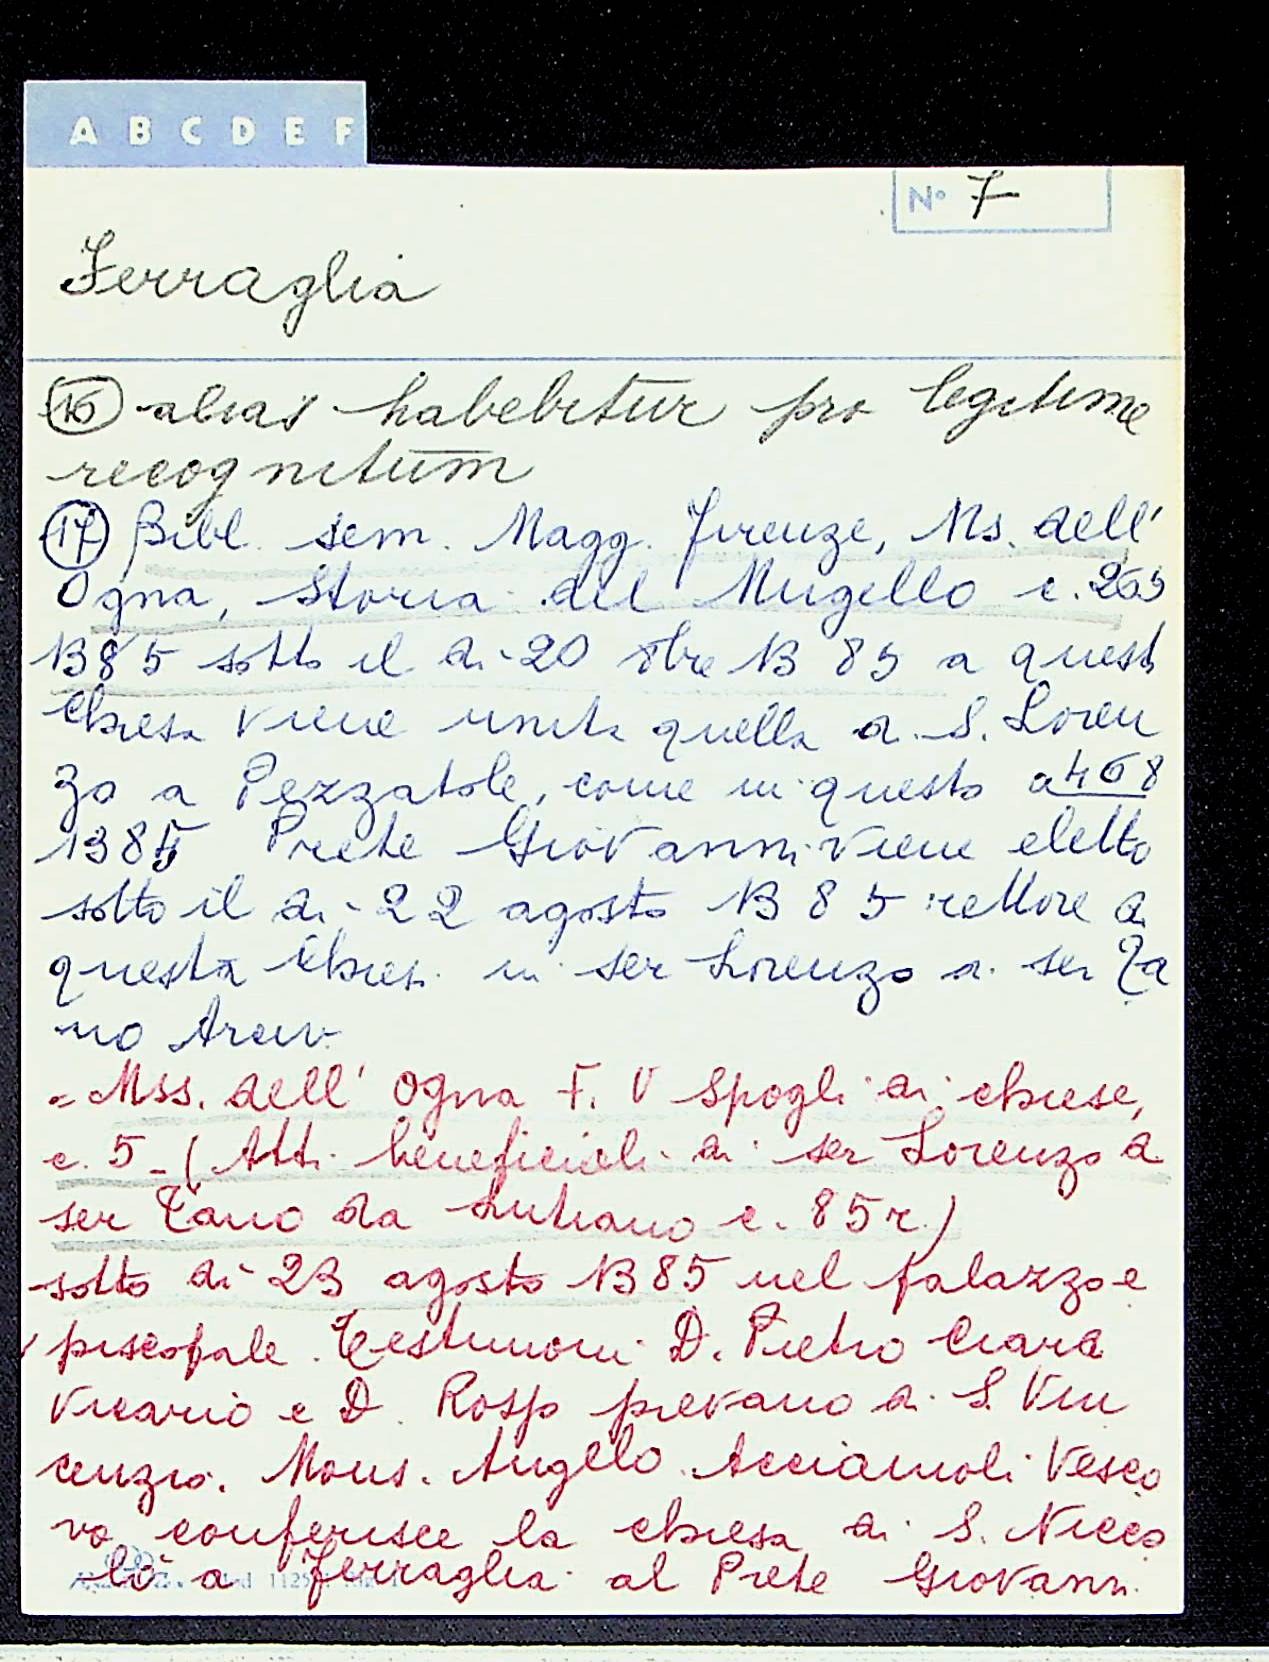 A B C D E F
N° 7
Ferraglia
16 alias habebitur pro legitime
recognitum
17 Bibl. Sem. Magg. Firenze, Ms. dell'
Ogna, Storia del Mugello c. 269
1385 sotto il di 20 8bre 1385 a quest
chiesa viene unita quella di S. Loren
zo a Pezzatole, come in questo a 468
1385 Prete Giovanni viene eletto
sotto il di 22 agosto 1385 rettore di
questa chies. in ser Lorenzo di ser Ta
no Arciv.
= Mss. dell' Ogna F. V Spogli di chiese,
c. 5 - (Atti beneficiali di ser Lorenzo di
ser Tano da Lutiano c. 85 r.)
sotto di 23 agosto 1385 nel palazzo e
piscopale. Testimoni D. Pietro Ciara
Vicario e D. Rosp pievano di S. Vin
cenzio. Mons. Angelo Acciaiuoli Vesco
vo conferisce la chiesa di S. Nicco
lò a Ferraglia al Prete Giovanni